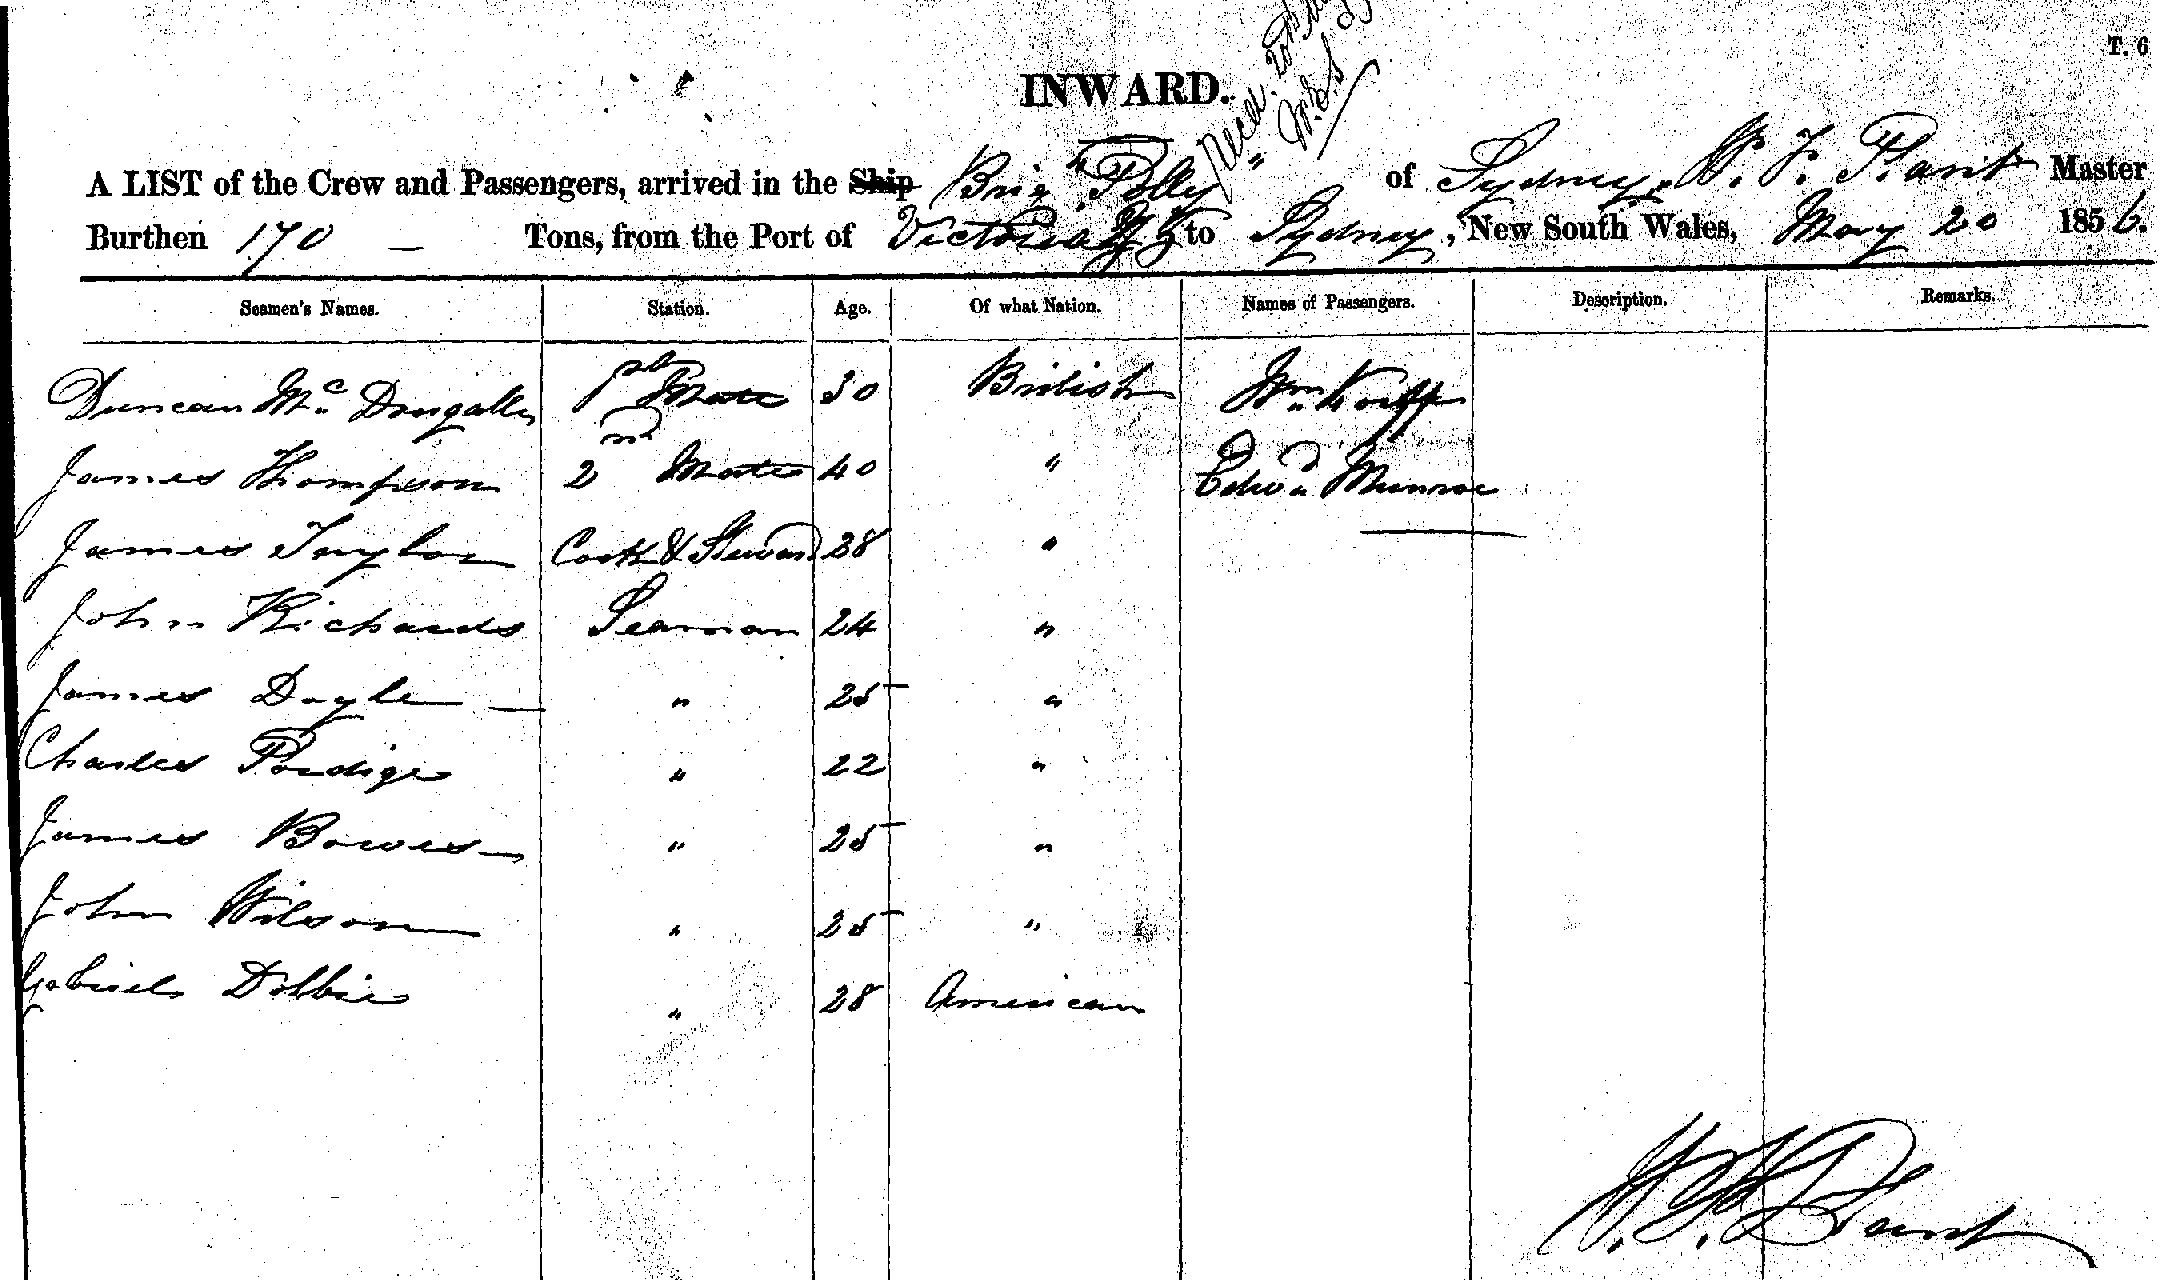 T. 6
INWARD.
A LIST of the Crew and Passengers, arrived in the Ship Brig "Polly" of Sydney, W. F. Plant Master
Burthen 170 — Tons, from the Port of Victoria to Sydney, New South Wales, May 20 1856.
Seamen's Names. Station. Age. Of what Nation. Names of Passengers. Description. Remarks.
Duncan McDougall 1st Mate 30 British Wm Korff
James Thompson 2nd Mate 40 " Edwd Munroe
James Taylor Cook & Steward 28 "
John Richards Seaman 24 "
James Doyle — " 25 "
Charles " 22 "
James Bowes " 25 "
John Wilson " 25 "
Gabriel Dobbie " 28 American
W. F. Plant